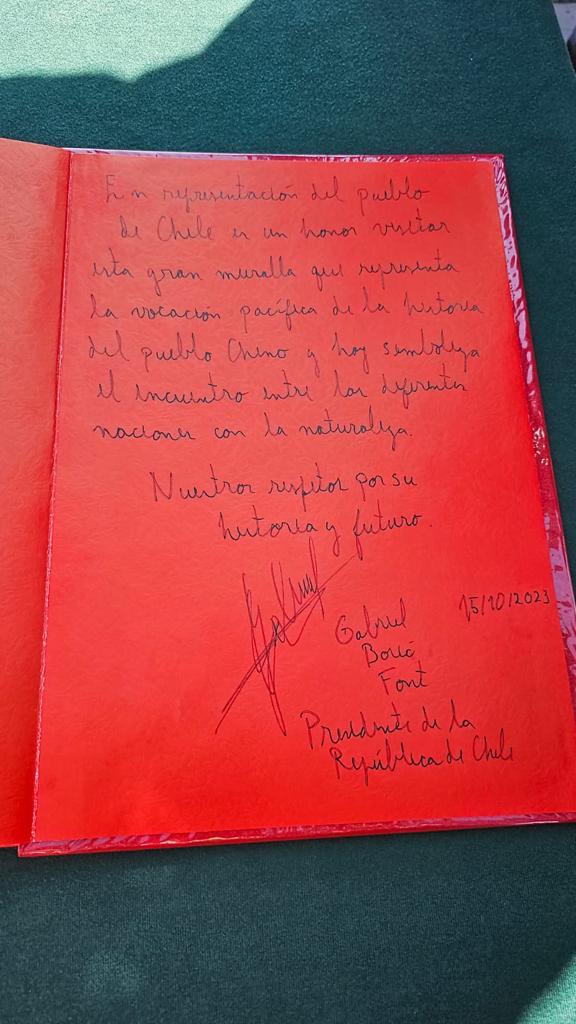 En representación del pueblo
de Chile es un honor visitar
esta gran muralla que representa
la vocación pacífica de la historia
del pueblo Chino y hoy simboliza
el encuentro entre las diferentes
naciones con la naturaleza.
Nuestros respetos por su
historia y futuro.
15/10/2023
Gabriel
Boric
Font
Presidente de la
República de Chile